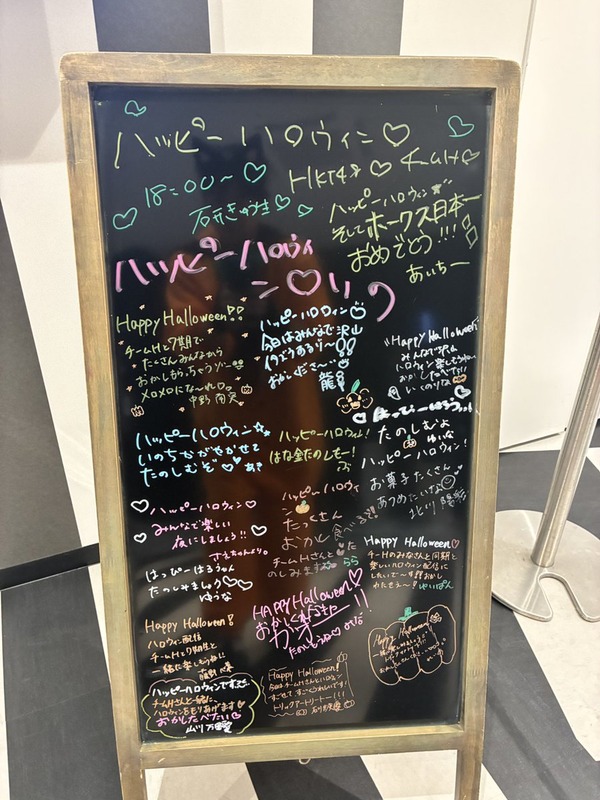 ハッピーハロウィン♡
18:00〜♡
HKT48♡チームH♡
ハッピーハロウィン
そしてホークス日本一
おめでとう!!!
あいちー
ハッピーハロウィ
ン♡りの
Happy Halloween!!
チームHと7期で
たくさんみんなから
おかしもらっちゃうぞー
メロメロにな〜れ
ハッピーハロウィン
今日はみんなで沢山
おかしださ〜い
龍
Happy Halloween
みんなで沢山
ハロウィン楽しもうね
いくのりな
はっぴーはろうぃん
たのしむよ
ゆいな
ハッピーハロウィン☆
いのちかがやかせて
たのしむぞ♡
ハッピーハロウィん!
はな金たのしもー!
ハッピーハロウィン!
お菓子たくさん
あつめたいな
北川陽彩
♡ハッピーハロウィン♡
みんなで楽しい
夜にしましょう!!
さえちゃんより。
ハッピーハロウィ
ン
たっくさん
おかし食べるぞ!
チームHさんとた
のしみます
らら
はっぴーはろうぃん
たのしみましょう♡
ゆうな
Happy Halloween♡
チームHのみなさんと同期と
楽しいハロウィン配信に
したいで〜す!!おかし
わたそう〜!
HAPPY Halloween
おかしくれなきゃ
Happy Halloween!
ハロウィン配信
チームHと7期生と
一緒に楽しもうね
Happy Halloween
ハッピーハロウィンですスで
チームHさんと一緒に、
ハロウィンをもりあげます
おかしたべたい♡
Happy Halloween!
今日はチームHさんとハロウィン
すごせてすごくうれしいです!
トリックアートリート〜!!!